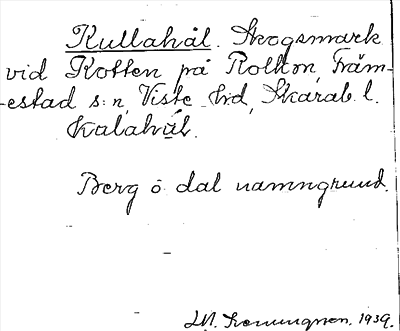 Kullahål. Skogsmark
vid Kotten på Rolkon, Främ-
-estad s:n, Viste hd, Skarab. l.
Kalahål.
Berg o. dal namngrund.
1939.